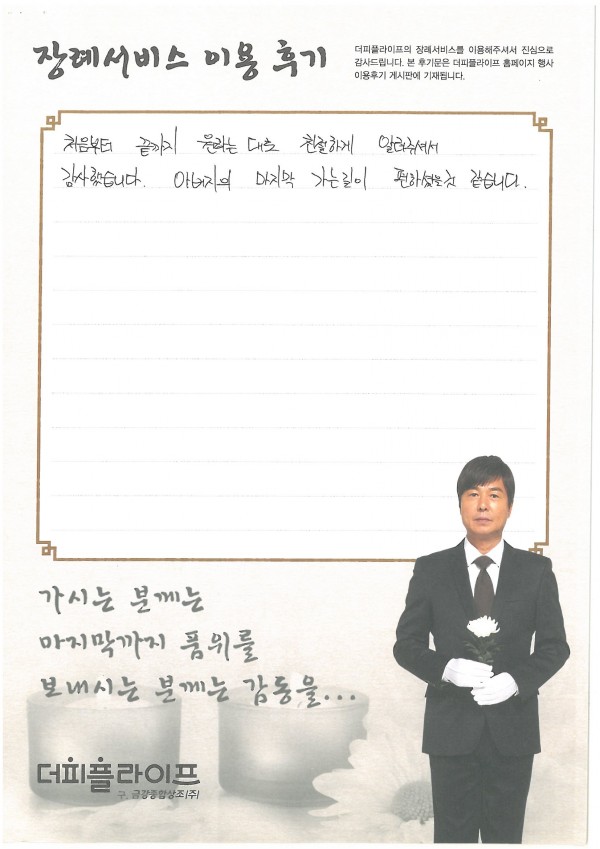 장례서비스 이용 후기
더피플라이프의 장례서비스를 이용해주셔서 진심으로
감사드립니다. 본 후기문은 더피플라이프 홈페이지 행사
이용후기 게시판에 기재됩니다.
처음부터 끝까지 원하는 대로 친절하게 알려주셔서
감사했습니다. 아버지의 마지막 가는길이 편하셨을것 같습니다.
가시는 분께는
마지막까지 품위를
보내시는 분께는 감동을...
더피플라이프
구. 금강종합상조(주)